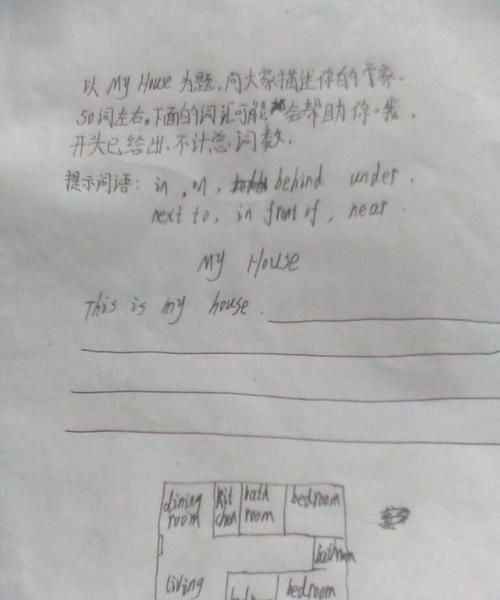 以 My House 为题,向大家描述你的家.
50词左右.下面的词语可能会帮助你。
开头已给出,不计总词数.
提示词语: in , on , behind under .
next to , in front of , near .
My House
This is my house.
dining room
kitchen
bath room
bedroom
bathroom
living
bedroom